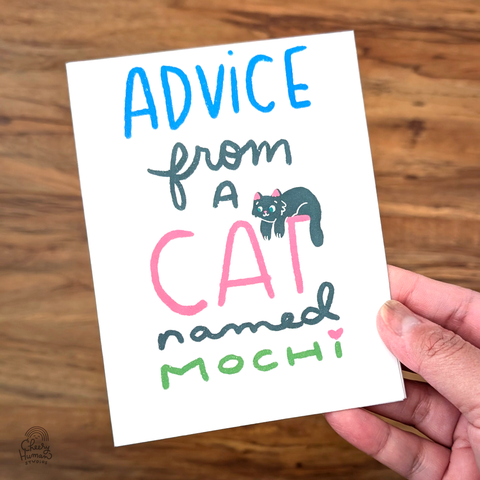 ADVICE
from
A
CAT
named
MOCHi
Cheeky
Human